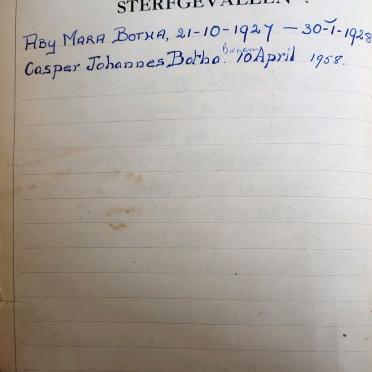 STERFGEVALLEN
Aby Mara Botha, 21-10-1927 — 30-1-1928
Casper Johannes Botha. 10 April 1958.